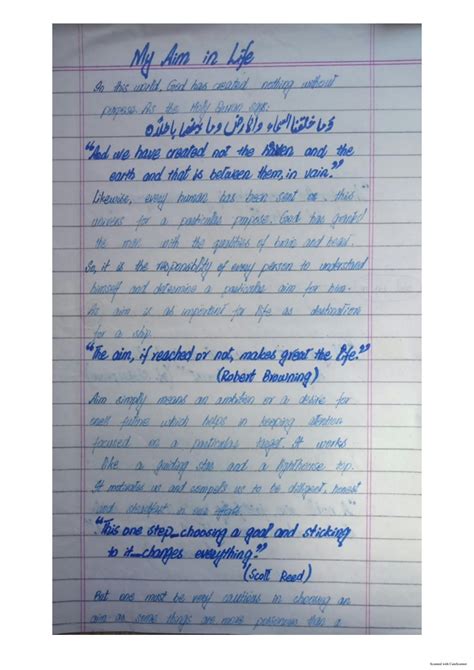 My Aim in Life
In this world, God has created nothing without
purpose. As the Holy Quran says:
وَمَا خَلَقْنَا السَّمَاءَ وَالْأَرْضَ وَمَا بَيْنَهُمَا بَاطِلًا
"And we have created not the heaven and the
earth and that is between them, in vain."
Likewise, every human has been sent on this
univers for a particular purpose. God has granted
the man with the qualities of brain and heart.
So, it is the responsiblity of every person to understand
himself and determine a particular aim for him-
An aim is as important for life as destination
for a ship.
"The aim, if reached or not, makes great the life."
(Robert Browning)
Aim simply means an ambition or a desire for
ones future which helps in keeping attention
focused on a particular target. It works
like a guiding star and a lighthouse top.
It motivates us and compels us to be diligent, honest
and steadfast in our efforts.
"This one step_choosing a goal and sticking
to it_changes everything."
(Scott Reed)
But one must be very cautious in choosing an
aim as some things are more possessions than a
Scanned with CamScanner